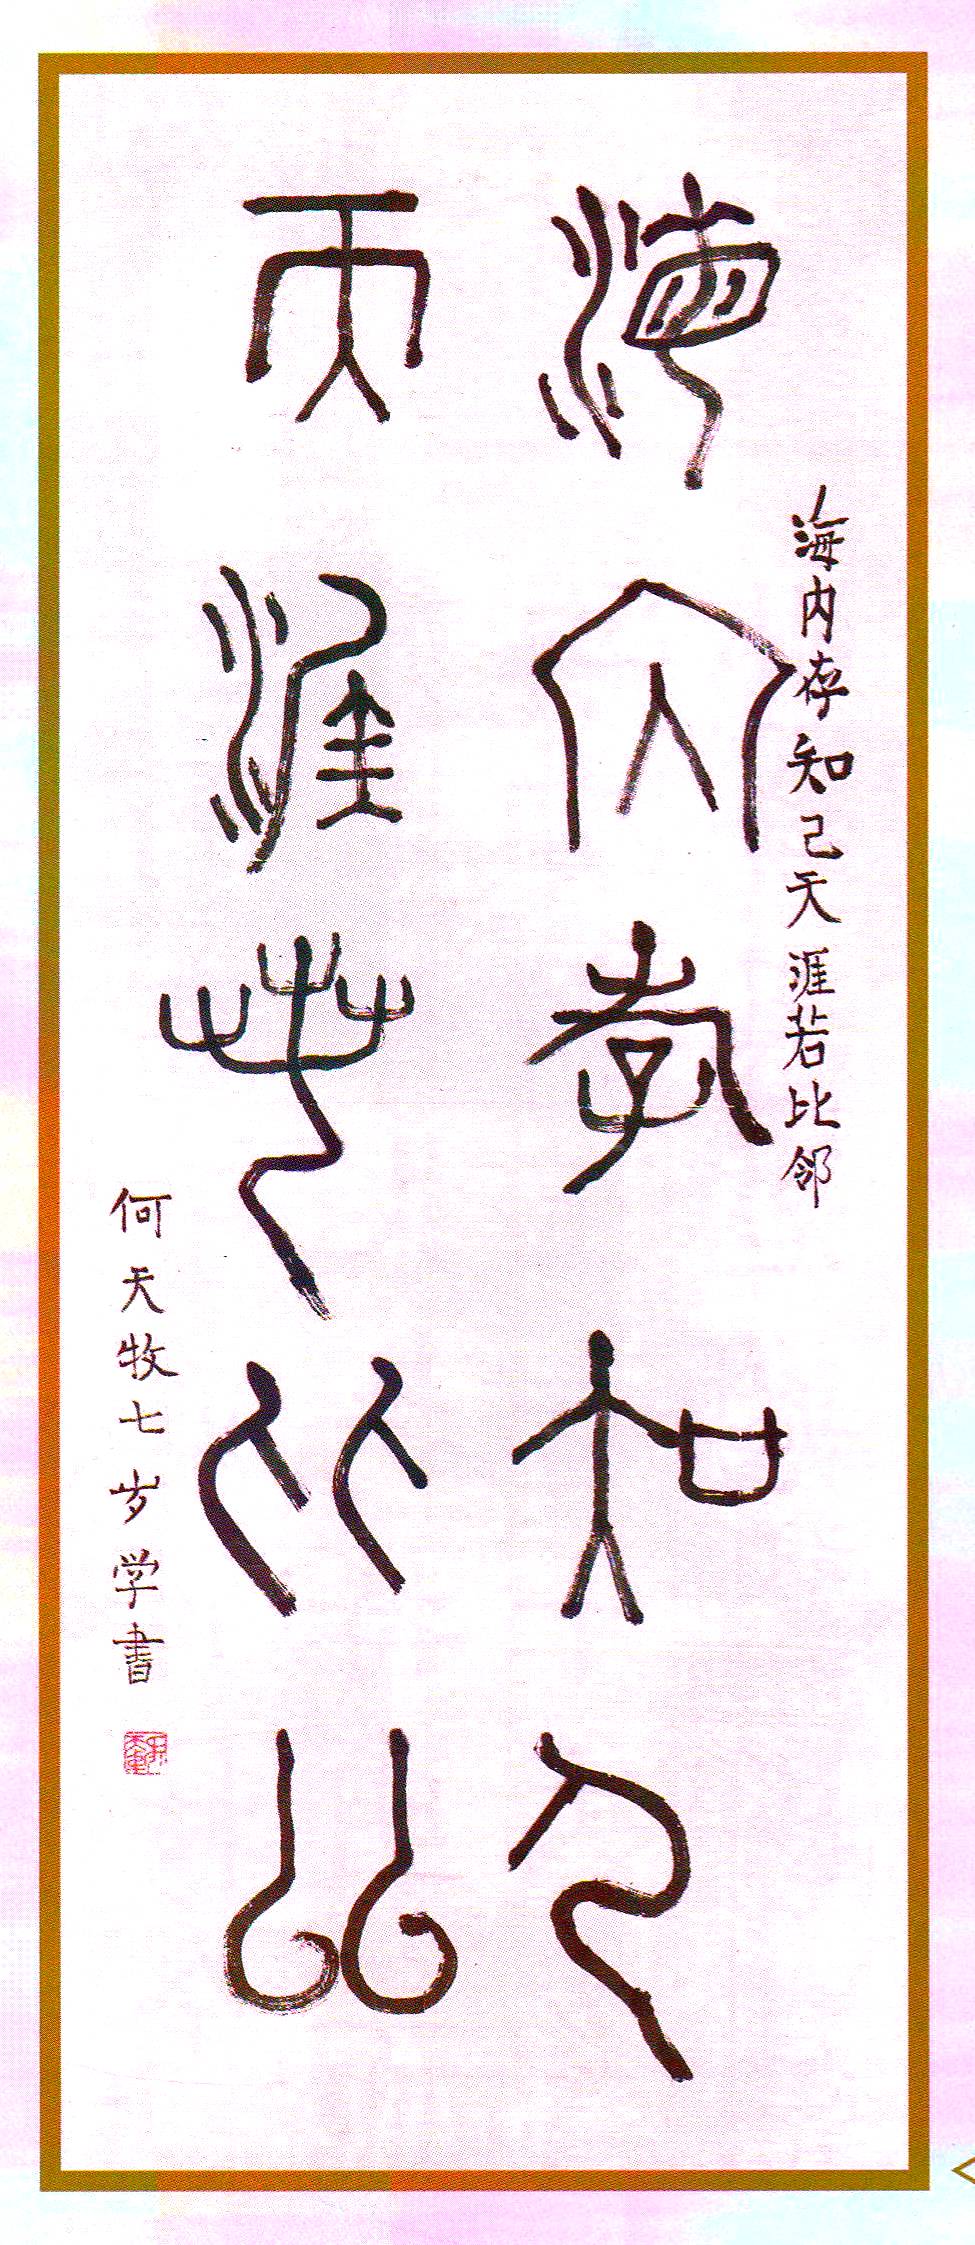 海内存知己
海内存知己天涯若比邻
天涯若比邻
何天牧七岁学書